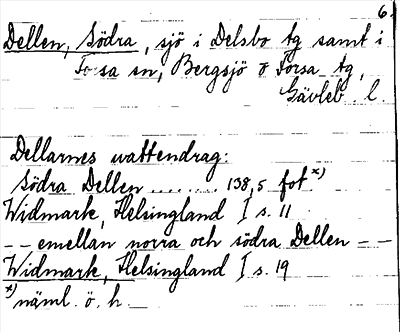 6.
Dellen, Södra, sjö i Delsbo tg samt i
Forsa sn, Bergsjö o Forsa tg,
Gävleb. l.
Dellarnes vattendrag:
Södra Dellen ........ 138,5 fot x)
Widmark, Helsingland I s. 11
-- emellan norra och södra Dellen --
Widmark, Helsingland I s. 19
x) näml. ö. h.